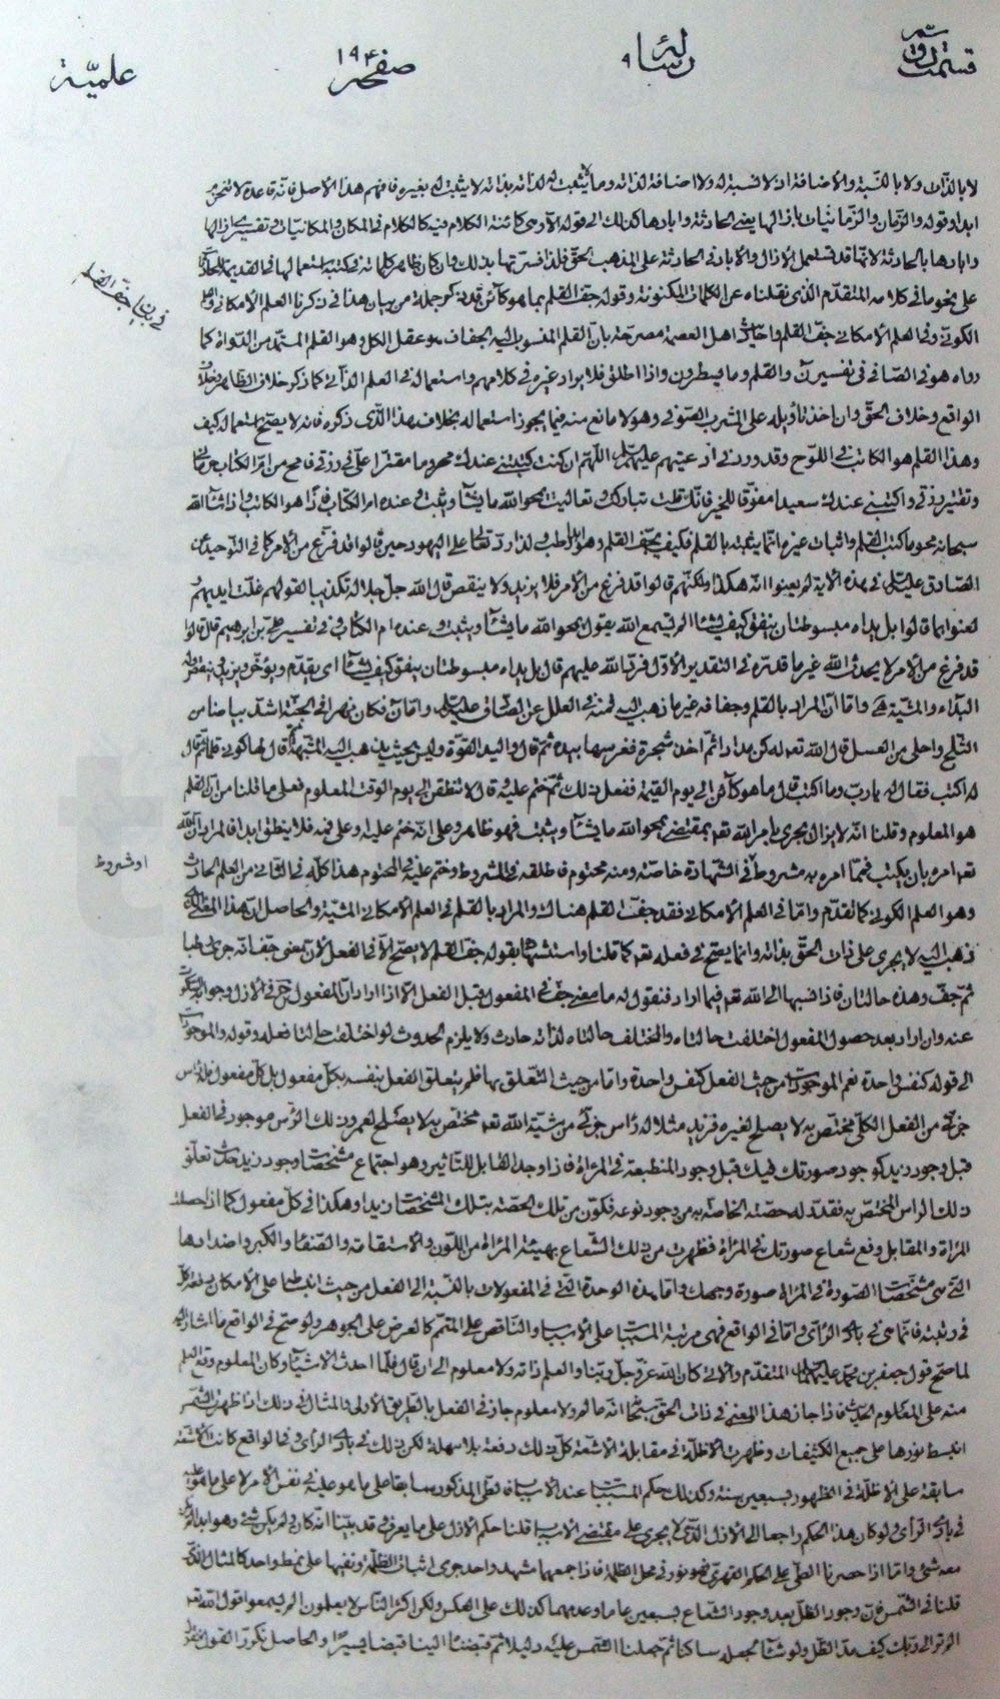 قسمت دوم
رسالهٔ ۹
صفحه ۱۹۴
علمیّة
لا بالذات ولا بالنسبة والاضافة اذ لا نسبة له ولا اضافة لذاته وما يثبت له لذاته بذاته لا يثبت له بغيره فافهم هذا الاصل فانه قاعدة لا تنخرم
ابدا وقوله والزمان والزمانيات باذالها يعنى الحادثة وابادها كذلك الى قوله الاوحى كائنة الكلام فيه كالكلام فى المكان والمكانيات وتفسيرى ازالها
وابادها بالحادثة لانها قد تستعمل الازال والاباد فى الحادثة على المذهب الحق فلذا فسرتها بذلك وان كان ظاهر كلماته فى كتبه استعمالها فى القديمة
على نحو ما فى كلامه المتقدم الذى نقلناه عن الكلمات المكنونة وقوله جف القلم بما هو كائن قد تذكر جملة من بيان هذا فى ذكرنا العلم الامكانى
الكونى وفى العلم الامكانى جف القلم واحاديث اهل العصمة مصرحة بان القلم المنسوب اليه الجفاف هو عقل الكل وهو القلم المستمد من الدواة كما
رواه هو فى الصافى فى تفسير ن والقلم وما يسطرون واذا اطلق فلا يراد غيره فى كلامهم واستعماله فى العلم الذاتى كما ذكر خلاف الظاهر وخلاف
الواقع وخلاف الحق وان اخذ تأويله على المشرب الصوفى وهو لا مانع منه فيما يجوز استعماله بخلاف هذا الذى ذكره فانه لا يصح استعماله كيف
وهذا القلم هو الكاتب فى اللوح وقد ورد فى ادعيتهم عليهم السلام اللهم ان كنت كتبتنى عندك محروما مقترا على فى رزقى فامح من ام الكتاب حرمانى
وتقتير رزقى واكتبنى عندك سعيدا موفقا للخير فانك قلت تباركت وتعاليت يمحو الله ما يشاء ويثبت وعنده ام الكتاب فاذا هو الكاتب واذا شاء الله
سبحانه محو ما كتب القلم واثبات غيره انما يثبته بالقلم فكيف يجف القلم وهو ابدا رطب ولذا رد تعالى على اليهود حين قالوا قد فرغ من الامر كما فى التوحيد عن
الصادق عليه السلام فى هذه الاية لم يعنوا انه هكذا ولكنهم قالوا قد فرغ من الامر فلا يزيد ولا ينقص قال الله جل جلاله تكذيبا لقولهم غلت ايديهم
لعنوا بما قالوا بل يداه مبسوطتان ينفق كيف يشاء الم تسمع الله يقول يمحو الله ما يشاء ويثبت وعنده ام الكتاب وفى تفسير على بن ابرهيم قال قالوا
قد فرغ من الامر لا يحدث الله غير ما قدره فى التقدير الاول فرد الله عليهم قال بل يداه مبسوطتان ينفق كيف يشاء اى يقدم ويؤخر ويزيد وينقص وله
البداء والمشية هى واما ان المراد بالقلم وجفافه غير ما ذهب اليه فمنه فى العلل عن الصادق عليه السلام واما ن فكان نهرا فى الجنة اشد بياضا من
الثلج واحلى من العسل قال الله تعه له كن مدادا ثم اخذ شجرة فغرسها بيده ثم قال واليد القوة وليس بحيث يذهب اليه المشبهة ثم قال لها كونى قلما ثم قال
له اكتب فقال له يا رب وما اكتب قال ما هو كائن الى يوم القيمة ففعل ذلك ثم ختم عليه وقال لا تنطقن الى يوم الوقت المعلوم فعلى ما قلنا من ان القلم
هو المعلوم وقلنا انه لا يزال يجرى بامر الله تعه بمقتضى يمحو الله ما يشاء ويثبت فهو ظاهر وعلى انه ختم عليه او على فمه فلا ينطق ابدا فالمراد ان الله
تعه امره بان يكتب فمما امره به مشروط فى الشهادة خاصة ومنه محتوم فاطلقه فى المشروط وختم عليه فى المحتوم هذا كله فى الثانى من العلم الحادث
وهو العلم الكونى كما تقدم واما فى العلم الامكانى فقد جف القلم هناك والمراد بالقلم فى العلم الامكانى المشية والحاصل ان هذا المعنى الذى
ذهب اليه لا يجرى على ذات الحق بذاته وانما يصح فى فعله تعه كما قلنا واستشهاده بقوله جف القلم لا يصح الا فى الفعل لان معنى جف انه جرى رطبا
ثم جف وهذه حالتان فاذا نسبها الى الله تعه فيما اراد فنقول له ما معنى جف فى المفعول قبل الفعل الا اذا اراد ان المفعول جرى فى الازل وجوابه السكوت
عنه وان اراد بعد حصول المفعول اختلفت حالتاه والمختلف حالتاه لذاته حادث ولا يلزم الحدوث لو اختلفت حالتا فعله وقوله والموجودات
الى قوله كنفس واحدة نعم الموجودات من حيث الفعل كنفس واحدة واما من حيث التعلق بها فلم يتعلق الفعل بنفسه بكل مفعول بل كل مفعول فله رأس
جزئى من الفعل الكلى مختص به لا يصلح لغيره فزيد مثلا له رأس جزئى من مشية الله تعه مختص به لا يصلح لعمرو وذلك الرأس موجود فى الفعل
قبل وجود زيد كوجود صورتك فيك قبل وجود المنطبعة فى المرآة فاذا وجد القابل للتأثير وهو اجتماع مشخصات وجود زيد حدث تعلق
ذلك الرأس المختص به فقدّر له حصته الخاصة به من وجود نوعه فكون من تلك الحصة بتلك المشخصات زيدا وهكذا فى كل مفعول كما اذا حصلت
المرآة والمقابل وقع شعاع صورتك فى المرآة فظهرت من ذلك الشعاع بهيئة المرآة من اللون والاستقامة والصفاء والكبر واضدادها
التى هى مشخصات الصورة فى المرآة صورة وجهك واما هذه الوحدة التى فى المفعولات بالنسبة الى الفعل من حيث انبساطها على الامكان دفعة كل
فى رتبته فانما هى فى بادى الرأى واما فى الواقع فهى مرتبة المسببات على الاسباب والناقص على المتمم كالعرض على الجوهر ولو صح فى الواقع ما اشار اليه
لما صح قول جعفر بن محمد عليهما السلام المتقدم والاتى كان الله عز وجل ربنا والعلم ذاته ولا معلوم الى ان قال فلما احدث الاشياء وكان المعلوم وقع العلم
منه على المعلوم الحديث فاذا جاز هذا المعنى فى ذات الحق سبحانه انه عالم ولا معلوم جاز فى الفعل بالطريق الاولى والمثال فى ذلك اذا ظهرت الشمس
انبسط نورها على جميع الكثيفات وظهرت الاظلة فى مقابلة الاشعة كل ذلك دفعة بلا مهلة لكن ذلك فى بادى الرأى وفى الواقع كانت الاشعة
سابقة على الاظلة فى الظهور بسبعين سنة وكذلك حكم المسببات عند الاسباب فطى المذكور سابقا على ما هو عليه فى نفس الامر لا على ما هو عليه
فى بادى الرأى ولو كان هذا الحكم راجعا الى الازل الذى لا يجرى على مقتضى الاسباب قلنا حكم الازل على ما يعرف وقد بينا انه كان ولم يكن شىء وهو ابدا لم يكن
معه شىء واما اذا حصرنا الطى على الحكم القهرى فهو نور فى محل الظلمة فاذا جمعهما مشهد واحد جرى اثبات الظلمة ونفيها على نمط واحد كالمثال الذى
قلنا فى الشمس فان وجود الظل بعد وجود الشعاع بسبعين عاما وعدمهما كذلك على العكس ولكن اكثر الناس لا يعلمون الم يسمعوا قول الله تعه
الم تر الى ربك كيف مد الظل ولو شاء لجعله ساكنا ثم جعلنا الشمس عليه دليلا ثم قبضناه الينا قبضا يسيرا والحاصل تكرر القول
فى بيان جف القلم
او شروط